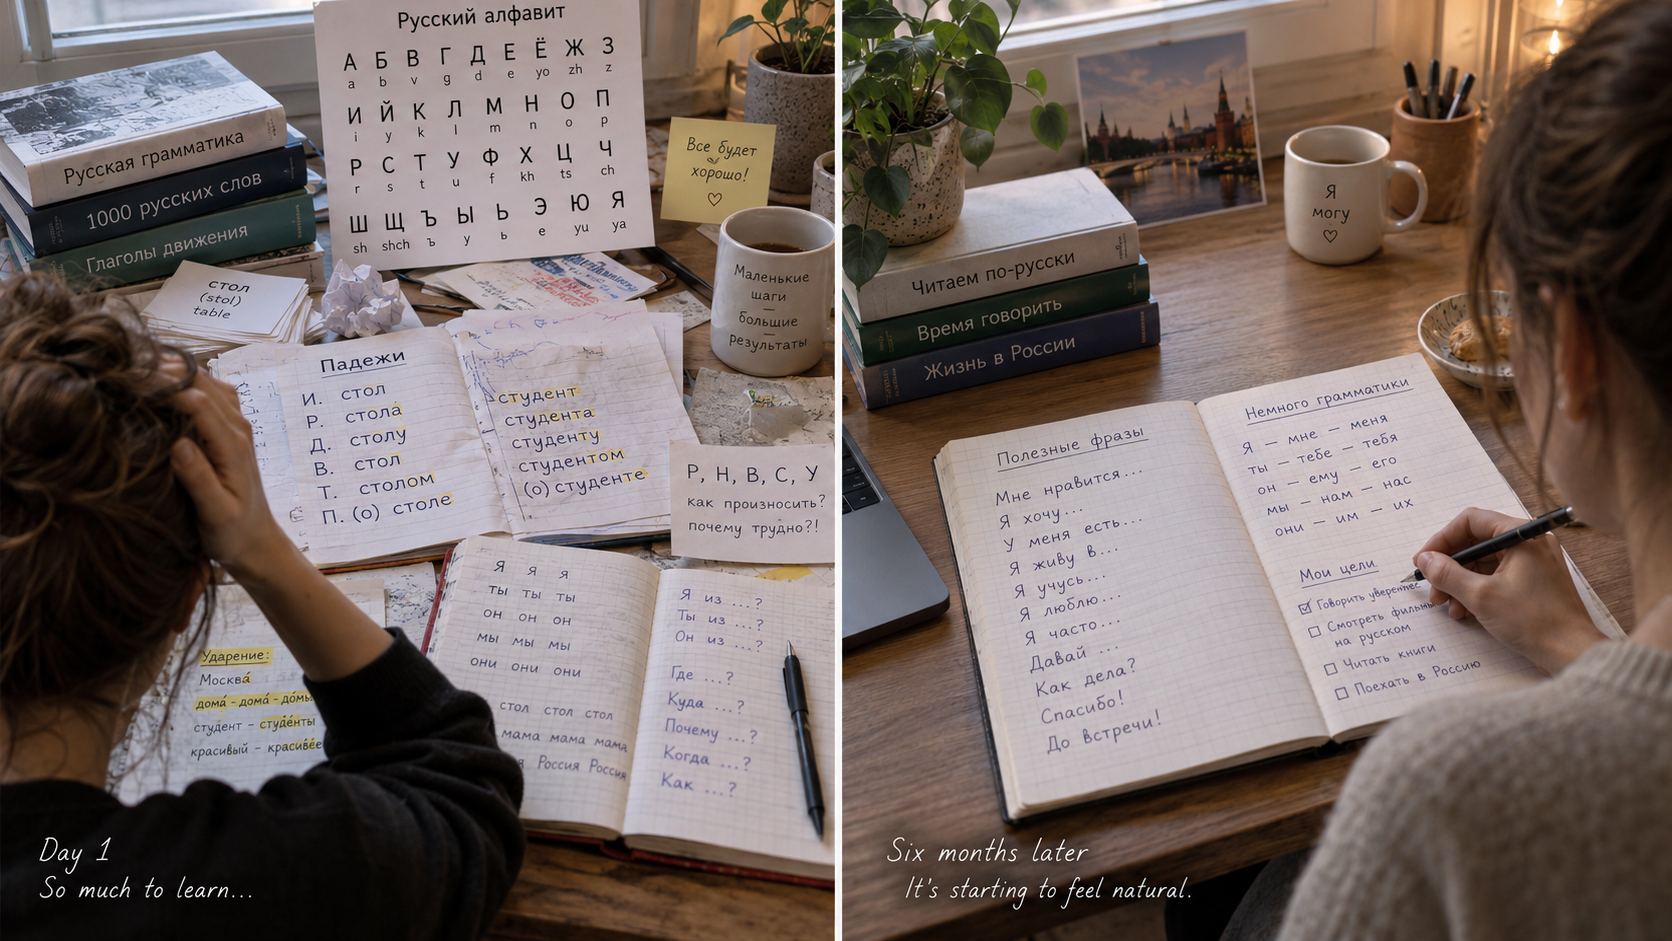 Русский алфавит
А Б В Г Д Е Ё Ж З
a b v g d e yo zh z
И Й К Л М Н О П
i y k l m n o p
Р С Т У Ф Х Ц Ч
r s t u f kh ts ch
Ш Щ Ъ Ы Ь Э Ю Я
sh shch ъ y ь e yu ya
Русская грамматика
1000 русских слов
Глаголы движения
Все будет
хорошо!
Маленькие
шаги
—
большие
—
результаты
стол
(stol)
table
Падежи
И. стол
Р. стола́
Д. столу
В. стол
Т. столом
П. (о) столе
студент
студента
студенту
студентом
(о) студенте
Р, Н, В, С, У
как произносить?
почему трудно?!
Ударение:
Москва́
дома́ - дома́ -
студент - студе́нты
красивый -
Я я я
ты ты ты
он он он
мы мы мы
они они они
стол стол стол
мама мама мама
Россия Россия
Я из ...?
Ты из ...?
Он из ...?
Где ...?
Куда ...?
Почему ...?
Когда ...?
Как ...?
Day 1
So much to learn...
Читаем по-русски
Время говорить
Жизнь в России
Я
могу
Полезные фразы
Мне нравится...
Я хочу...
У меня есть...
Я живу в...
Я учусь...
Я люблю...
Я часто...
Давай ...
Как дела?
Спасибо!
До встречи!
Немного грамматики
Я — мне — меня
ты — тебе — тебя
он — ему — его
мы — нам — нас
они — им — их
Мои цели
Говорить увереннее
Смотреть фильмы
на русском
Читать книги
Поехать в Россию
Six months later
It's starting to feel natural.